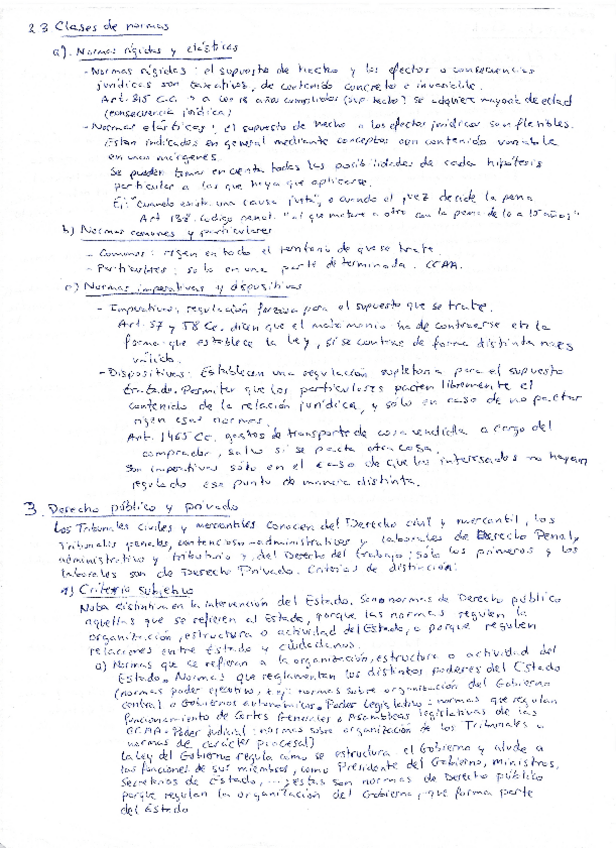 2.3 Clases de normas
a). Normas rígidas y elásticas
- Normas rígidas: el supuesto de hecho y los efectos o consecuencias
jurídicas son taxativas, de contenido concreto e invariable.
Art. 315 C.C. → a los 18 años cumplidos (sup. hecho) se adquiere mayoría de edad
(consecuencia jurídica)
- Normas elásticas: el supuesto de hecho o los efectos jurídicos son flexibles.
Están indicados en general mediante conceptos con contenido variable
en unos márgenes.
Se pueden tener en cuenta todas las posibilidades de cada hipótesis
particular a las que haya que aplicarse.
Ej: "Cuando exista una causa justa", o cuando el juez decide la pena
Art 138 código penal. "al que matare a otro con la pena de 10 a 15 años"
b) Normas comunes y particulares
- Comunes: rigen en todo el territorio de que se trate.
- Particulares: solo en una parte determinada. CCAA.
c) Normas imperativas y dispositivas
- Imperativas: regulación forzosa para el supuesto que se trate.
Art. 57 y 58 Cc. dicen que el matrimonio ha de contraerse en la
forma que establece la ley, si se contrae de forma distinta no es
válido.
- Dispositivas: Establecen una regulación supletoria para el supuesto
tratado. Permiten que los particulares pacten libremente el
contenido de la relación jurídica, y sólo en caso de no pactar
rigen esas normas.
Art. 1465 Cc. gastos de transporte de cosa vendida a cargo del
comprador, salvo si se pacta otra cosa.
Son imperativas sólo en el caso de que los interesados no hayan
regulado ese punto de manera distinta.
3. Derecho público y privado
Los Tribunales civiles y mercantiles conocen del Derecho civil y mercantil, los
Tribunales penales, contencioso-administrativos y laborales de Derecho Penal,
administrativo y tributario y del Derecho del trabajo; sólo los primeros y los
laborales son de Derecho Privado. Criterios de distinción:
1) Criterio subjetivo
Nota distintiva en la intervención del Estado. Son normas de Derecho público
aquellas que se refieren al Estado, porque las normas regulen la
organización, estructura o actividad del Estado, o porque regulen
relaciones entre Estado y ciudadanos.
a) Normas que se refieran a la organización, estructura o actividad del
Estado. Normas que reglamenten los distintos poderes del Estado
(normas poder ejecutivo, ej: normas sobre organización del Gobierno
central o Gobiernos autonómicos. Poder Legislativo: normas que regulan
funcionamiento de Cortes Generales o Asambleas legislativas de las
CCAA. Poder judicial: normas sobre organización de los Tribunales o
normas de carácter procesal)
La Ley del Gobierno regula como se estructura el Gobierno y alude a
las funciones de sus miembros, como Presidente del Gobierno, ministros,
Secretarios de Estado, ...; éstas son normas de Derecho público
porque regulan la organización del Gobierno, que forma parte
del Estado